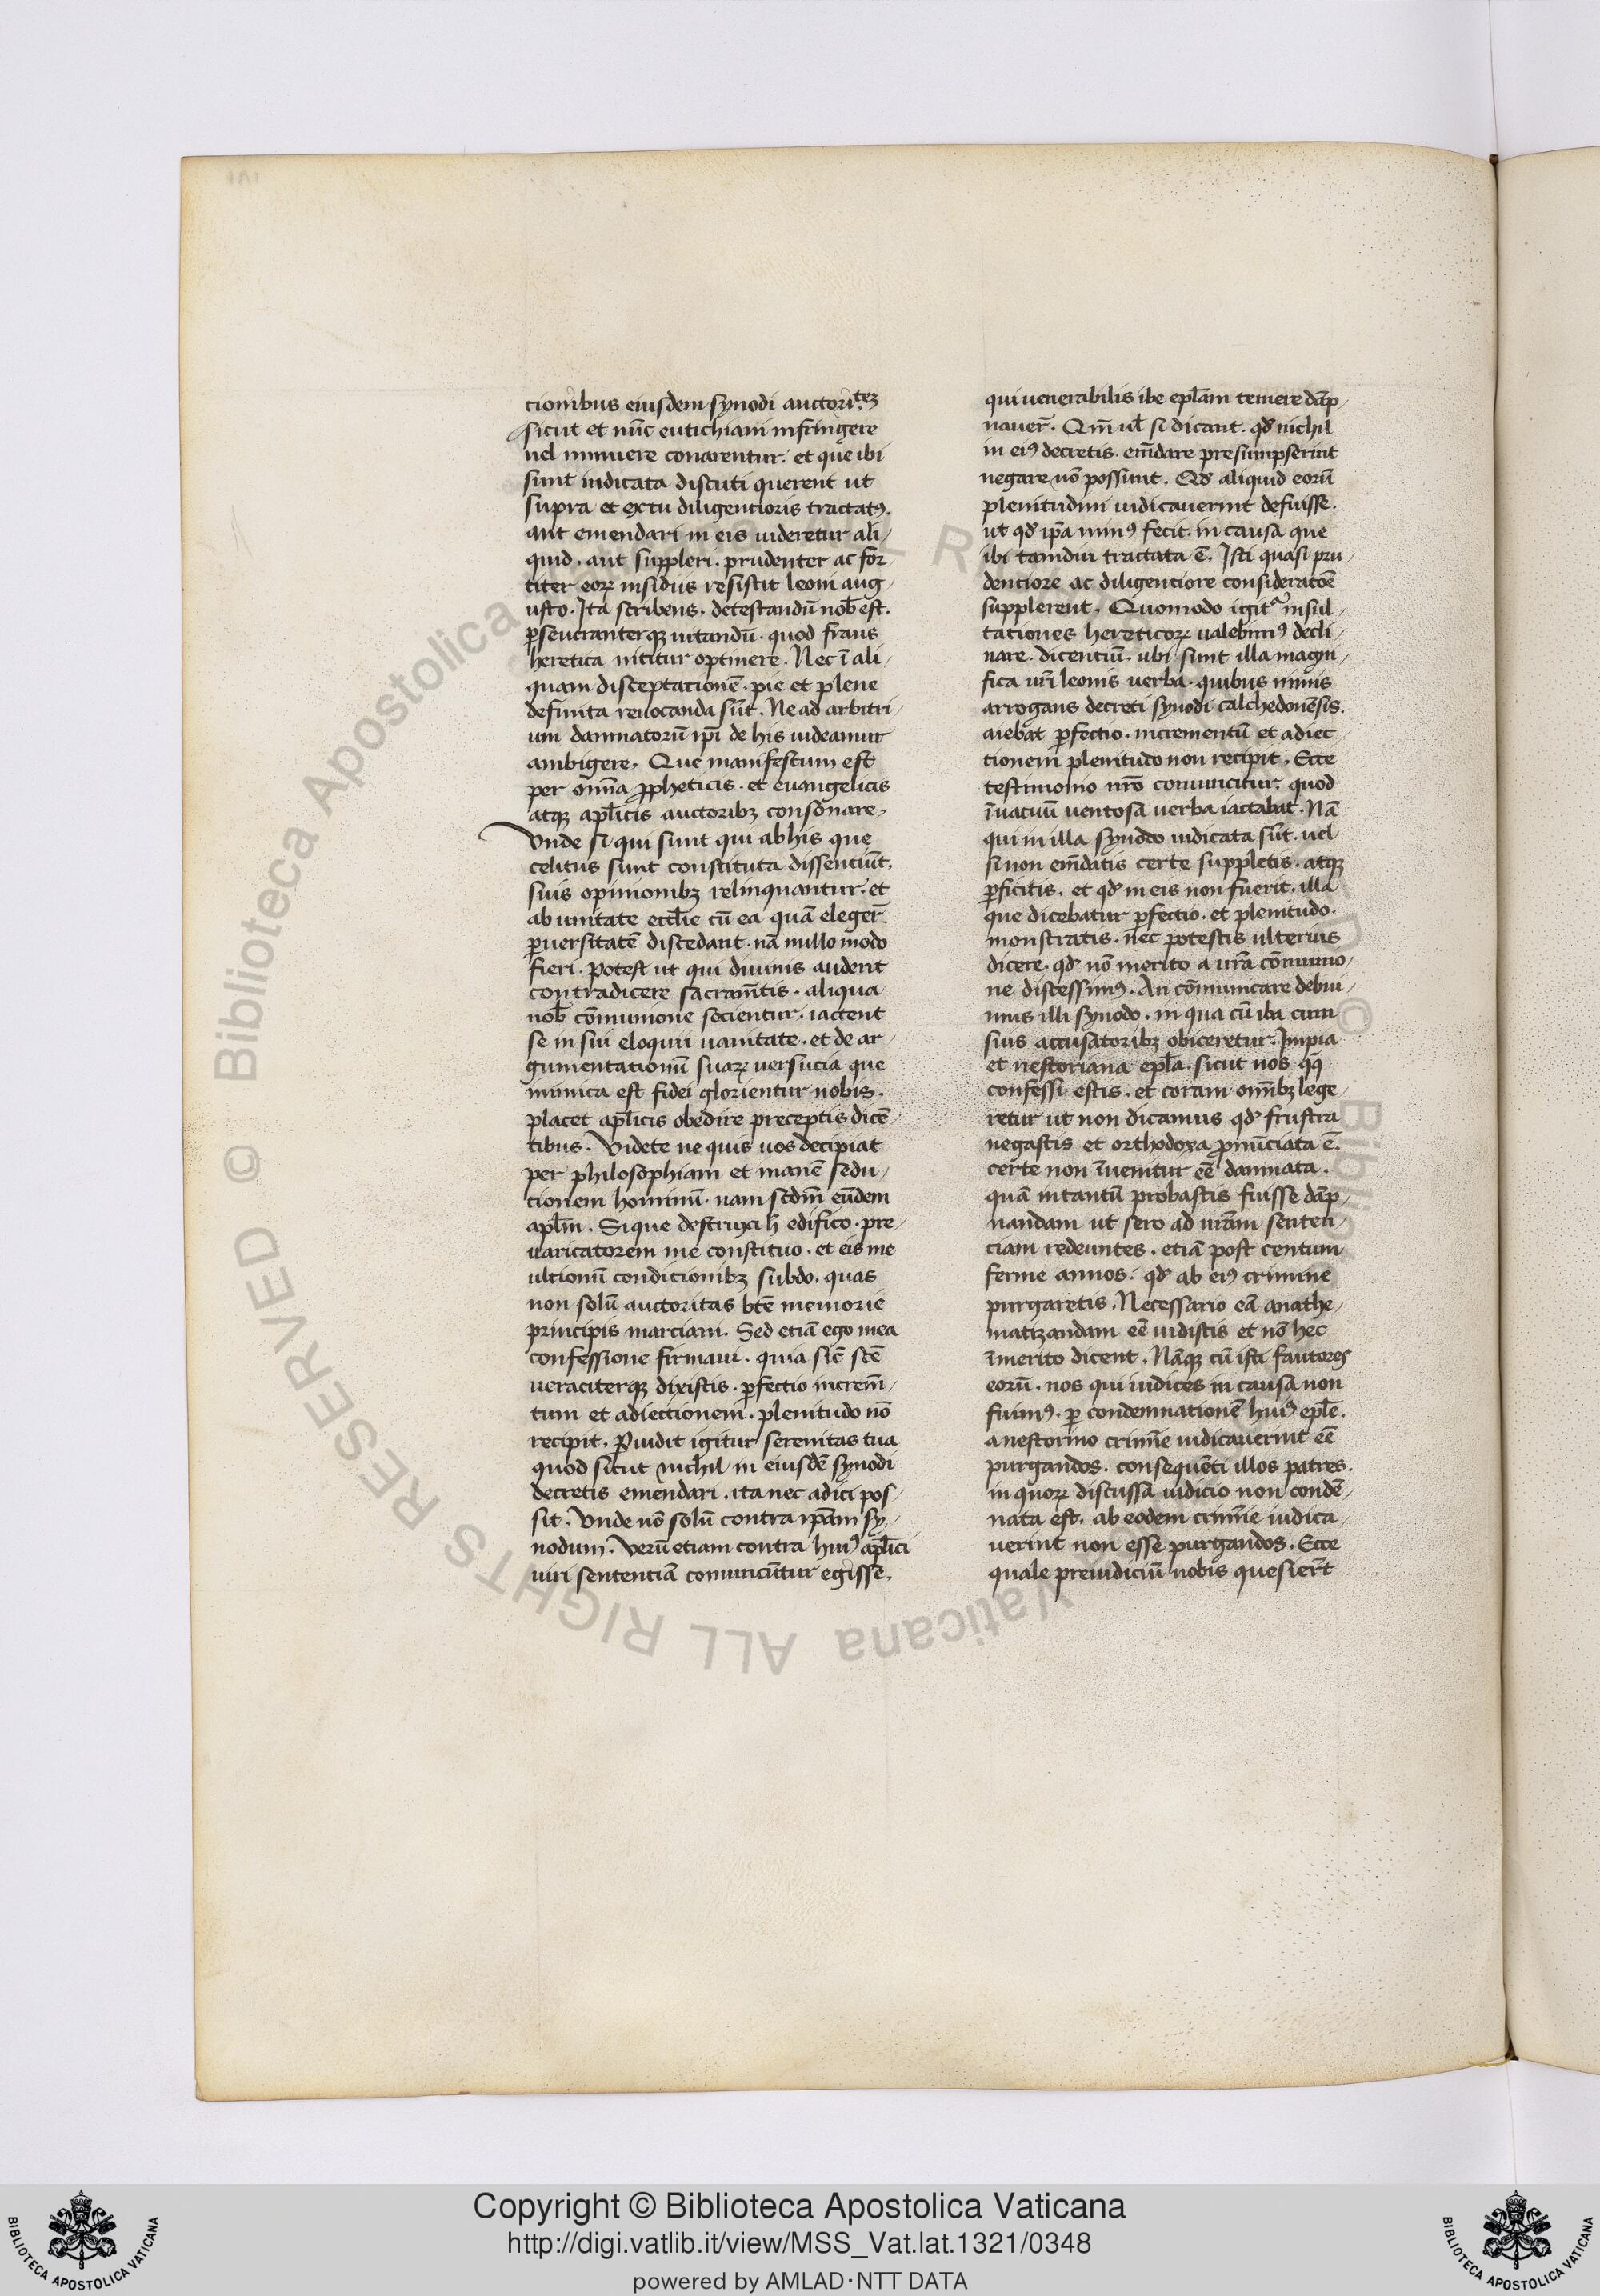 cionibus eiusdem synodi auctoritez
sicut et nūc eutichiani infringere
uel minuere conarentur. et que ibi
sunt iudicata discuti querent ut
supra et extu diligentioris tractatꝰ.
aut emendari in eis uideretur ali
quid. aut suppleri. prudenter ac for
titer eoꝝ insidiis resistit leoni aug
usto. Ita scribens. detestandū nob̄ est.
ꝑseueranterqꝫ uitandū. quod fraus
heretica nititur optinere. Nec ī ali
quam disceptationē. pie et plene
definita reuocanda sūt. Ne ad arbitri
um damnatorū ip̄i de his uideamur
ambigere. Que manifestum est
per om̄ia ꝓpheticis. et euangelicis
atqꝫ apl̄icis auctoribꝫ consonare.
Vnde si qui sunt qui ab his que
celitus sunt constituta dissentiūt.
suis opinionibꝫ relinquantur. et
ab unitate eccl̄ie cū ea quā eleger̄.
ꝑuersitatē discedant. nā nullo modo
fieri. potest ut qui diuinis audent
contradicere sacram̄tis. aliqua
nob̄ cōmunione socientur. iactent
se in sui eloquii uanitate. et de ar
gumentationū suaꝝ uersucia que
inimica est fidei glorientur nobis.
placet apl̄icis obedire preceptis dicē
tibus. Videte ne quis uos decipiat
per philosophiam et inanē sedu
ctionem hominū. nam scdm̄ eūdem
apl̄m. Si que destruxi h̄ edifico. pre
uaricatorem me constituo. et eis me
ultionū condicionibꝫ subdo. quas
non solū auctoritas bt̄e memorie
principis marciani. Sed etiā ego mea
confessione firmaui. quia sic̄ sc̄e
ueraciterqꝫ dixistis. ꝑfectio increm̄
tum et adiectionem. plenitudo nō
recipit. Ꝓuidit igitur serenitas tua
quod sicut nichil in eiusdē synodi
decretis emendari. ita nec adici pos
sit. Vnde nō solū contra ip̄am sy
nodum. Verū etiam contra huiꝰ apl̄ici
uiri sententiā conuincūtur egisse.
qui uenerabilis ibe epl̄am temere dāp
nauer̄. Qm̄ ul̄ si dicant. qd̄ nichil
in eiꝰ decretis. em̄dare presumpserint
negare nō possunt. Qd̄ aliquid eorū
plenitudini iudicauerint defuisse.
ut qd̄ ip̄a minꝰ fecit. in causa que
ibi tamdiu tractata ē. Isti quasi pru
dentiore ac diligentiore consideratōe
supplerent. Quomodo igit᷑ insul
tationes hereticoꝝ ualebimꝰ decli
nare. dicentiū. ubi sunt illa magni
fica ur̄i leonis uerba. quibus nimis
arrogans decreti synodi calchedonēsis.
aiebat ꝑfectio. incrementū et adiec
tionem plenitudo non recipit. Ecce
testimonio nr̄o conuincitur. quod
ī uacuū uentosa uerba iactabat. Nā
qui in illa synodo iudicata sūt. uel
si non em̄datis certe suppletis. atqꝫ
ꝑficitis. et qd̄ in eis non fuerit. illa
que dicebatur ꝑfectio. et plenitudo.
monstratis. nec potestis ulterius
dicere. qd̄ nō merito a ur̄a cōmunio
ne discessimꝰ. An cōmunicare debui
mus illi synodo. in qua cū iba cum
suis accusatoribꝫ obiceretur. Impia
et nestoriana epl̄a. sicut nos qꝗ
confessi estis. et coram om̄ibꝫ lege
retur ut non dicamus qd̄ frustra
negastis et orthodoxa ꝓnūciata ē.
certe non īuenitur eē damnata.
quā intantū probastis fuisse dāp
nandam ut sero ad ur̄am senten
ciam redeuntes. etiā post centum
ferme annos. qd̄ ab eiꝰ crimine
purgaretis. Necessario eā anathe
matizandam eē uidistis et nō hec
īmerito dicent. Nāqꝫ cū isti fautores
eorū. nos qui iudices in causa non
fuimꝰ. ꝑ condemnationē huiꝰ epl̄e.
a nestorino crim̄ie iudicauerint eē
purgandos. consequēti illos patres.
in quoꝝ discussa iudicio non condē
nata est. ab eodem crim̄ie iudica
uerint non esse purgandos. Ecce
quale preiudiciū nobis quesier̄t
Copyright © Biblioteca Apostolica Vaticana
http://digi.vatlib.it/view/MSS_Vat.lat.1321/0348
powered by AMLAD·NTT DATA
BIBLIOTECA APOSTOLICA VATICANA
BIBLIOTECA APOSTOLICA VATICANA
© Biblioteca Apostolica Vaticana ALL RIGHTS RESERVED